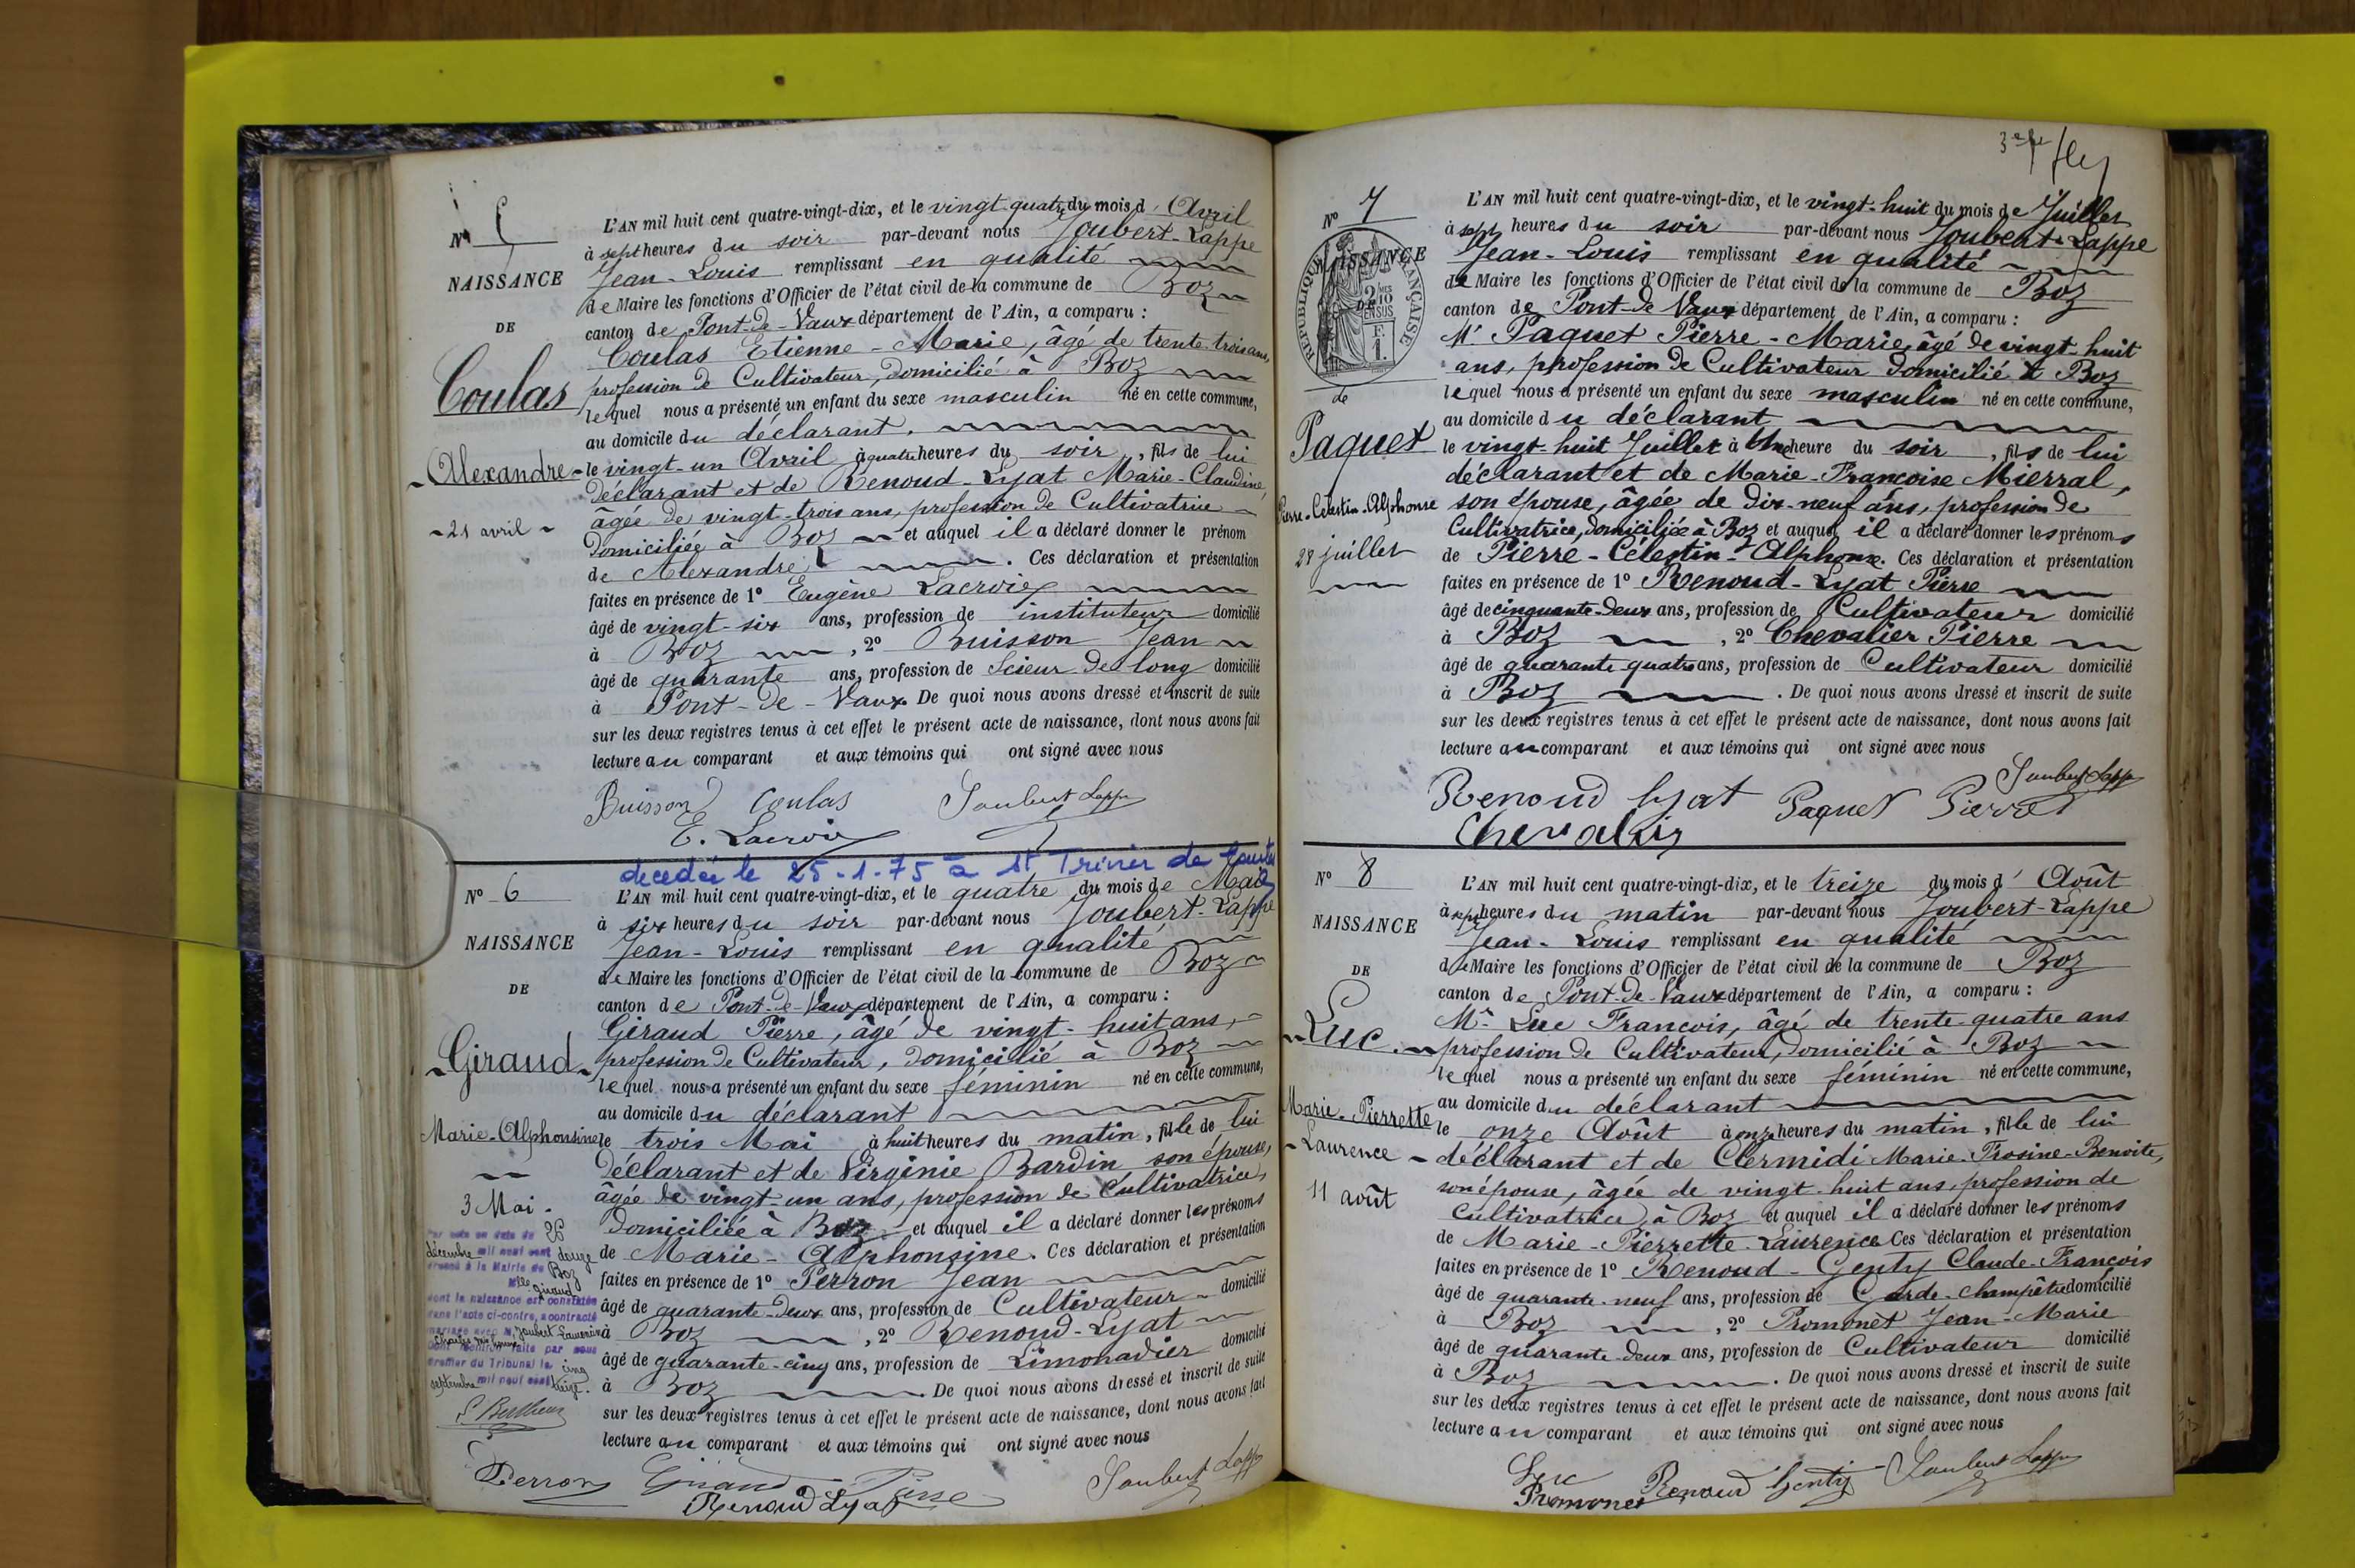 Nº 5
NAISSANCE
DE
Coulas
Alexandre
21 avril
L'AN mil huit cent quatre-vingt-dix, et le vingt-quatre du mois d'Avril
à sept heures du soir par-devant nous Joubert-Lappe
Jean-Louis remplissant en qualité
de Maire les fonctions d'Officier de l'état civil de la commune de Boz
canton de Pont-de-Vaux département de l'Ain, a comparu :
Coulas Etienne-Marie, âgé de trente-trois ans,
profession de Cultivateur, domicilié à Boz
lequel nous a présenté un enfant du sexe masculin né en cette commune,
au domicile du déclarant.
le vingt-un Avril à quatre heures du soir, fils de lui
déclarant et de Renoud-Lyat Marie-Claudine,
âgée de vingt-trois ans, profession de Cultivatrice
domiciliée à Boz et auquel il a déclaré donner le prénom
de Alexandre. Ces déclaration et présentation
faites en présence de 1º Eugène Lacroix
âgé de vingt-six ans, profession de instituteur domicilié
à Boz, 2º Buisson Jean
âgé de quarante ans, profession de Scieur de long domicilié
à Pont-de-Vaux. De quoi nous avons dressé et inscrit de suite
sur les deux registres tenus à cet effet le présent acte de naissance, dont nous avons fait
lecture au comparant et aux témoins qui ont signé avec nous
Buisson Coulas Joubert Lappe
E. Lacroix
decedée le 25-1-75 à St Trivier de Courtes
Nº 6
NAISSANCE
DE
Giraud
Marie-Alphonsine
3 Mai.
Par acte en date du 26
décembre mil neuf cent douze
dressé à la Mairie de Boz
Mlle Giraud
dont la naissance est constatée
dans l'acte ci-contre, a contracté
mariage avec M. Joubert Laurent
Dont mention faite par nous
Greffier du Tribunal le cinq
septembre mil neuf cent treize.
L'AN mil huit cent quatre-vingt-dix, et le quatre du mois de Mai
à six heures du soir par-devant nous Joubert-Lappe
Jean-Louis remplissant en qualité
de Maire les fonctions d'Officier de l'état civil de la commune de Boz
canton de Pont-de-Vaux département de l'Ain, a comparu :
Giraud Pierre, âgé de vingt-huit ans,
profession de Cultivateur, domicilié à Boz
lequel nous a présenté un enfant du sexe féminin né en cette commune,
au domicile du déclarant
le trois Mai à huit heures du matin, fille de lui
déclarant et de Virginie Bardin, son épouse,
âgée de vingt-un ans, profession de Cultivatrice,
domiciliée à Boz et auquel il a déclaré donner les prénoms
de Marie-Alphonsine. Ces déclaration et présentation
faites en présence de 1º Perron Jean
âgé de quarante-deux ans, profession de Cultivateur domicilié
à Boz, 2º Renoud-Lyat
âgé de quarante-cinq ans, profession de Limonadier domicilié
à Boz. De quoi nous avons dressé et inscrit de suite
sur les deux registres tenus à cet effet le présent acte de naissance, dont nous avons fait
lecture au comparant et aux témoins qui ont signé avec nous
Perron Giraud Pierre Joubert Lappe
Renoud Lyat
Nº 7
NAISSANCE
RÉPUBLIQUE FRANÇAISE
de
Paquet
Pierre-Celestin-Alphonse
28 juillet
L'AN mil huit cent quatre-vingt-dix, et le vingt-huit du mois de Juillet
à sept heures du soir par-devant nous Joubert-Lappe
Jean-Louis remplissant en qualité
de Maire les fonctions d'Officier de l'état civil de la commune de Boz
canton de Pont-de-Vaux département de l'Ain, a comparu :
Mr Paquet Pierre-Marie, âgé de vingt-huit
ans, profession de Cultivateur domicilié à Boz
lequel nous a présenté un enfant du sexe masculin né en cette commune,
au domicile du déclarant
le vingt-huit Juillet à Une heure du soir, fils de lui
déclarant et de Marie-Françoise Mierral,
son épouse, âgée de dix-neuf ans, profession de
Cultivatrice, domiciliée à Boz et auquel il a déclaré donner les prénoms
de Pierre-Célestin-Alphonse. Ces déclaration et présentation
faites en présence de 1º Renoud-Lyat Pierre
âgé de cinquante-deux ans, profession de Cultivateur domicilié
à Boz, 2º Chevalier Pierre
âgé de quarante quatre ans, profession de Cultivateur domicilié
à Boz. De quoi nous avons dressé et inscrit de suite
sur les deux registres tenus à cet effet le présent acte de naissance, dont nous avons fait
lecture au comparant et aux témoins qui ont signé avec nous
Joubert Lappe
Renoud Lyat Paquet Pierre
Chevalier
Nº 8
NAISSANCE
DE
Luc
Marie-Pierrette
Laurence
11 août
L'AN mil huit cent quatre-vingt-dix, et le treize du mois d'Août
à sept heures du matin par-devant nous Joubert-Lappe
Jean-Louis remplissant en qualité
de Maire les fonctions d'Officier de l'état civil de la commune de Boz
canton de Pont-de-Vaux département de l'Ain, a comparu :
Mr Luc François, âgé de trente-quatre ans
profession de Cultivateur, domicilié à Boz
lequel nous a présenté un enfant du sexe féminin né en cette commune,
au domicile du déclarant
le onze Août à onze heures du matin, fille de lui
déclarant et de Clermidi Marie-Frosine-Benoite,
son épouse, âgée de vingt-huit ans, profession de
Cultivatrice, à Boz et auquel il a déclaré donner les prénoms
de Marie-Pierrette-Laurence Ces déclaration et présentation
faites en présence de 1º Renoud-Genty Claude-François
âgé de quarante-neuf ans, profession de Garde-champêtre domicilié
à Boz, 2º Promonet Jean-Marie
âgé de quarante-deux ans, profession de Cultivateur domicilié
à Boz. De quoi nous avons dressé et inscrit de suite
sur les deux registres tenus à cet effet le présent acte de naissance, dont nous avons fait
lecture au comparant et aux témoins qui ont signé avec nous
Luc Renoud Genty Joubert Lappe
Promonet